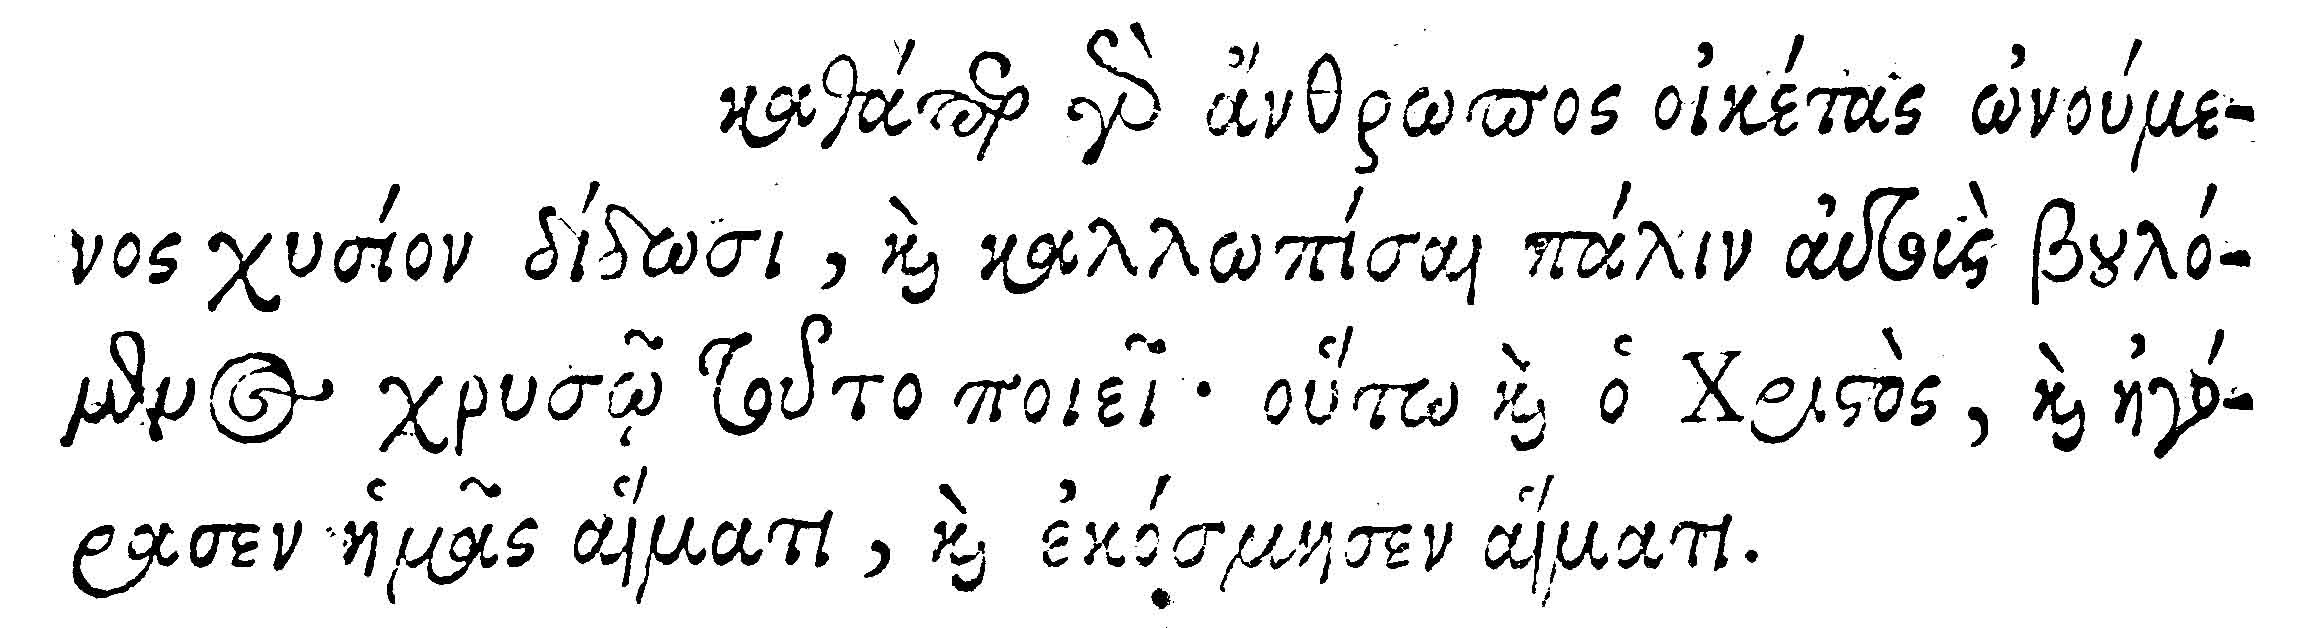 καθάπερ γὰρ ἄνθρωπος οἰκέτας ὠνούμε-
νος χυσίον δίδωσι, καὶ καλλωπίσαι πάλιν αὐτοὺς βουλό-
μενος χρυσῷ τοῦτο ποιεῖ· οὕτω καὶ ὁ Χριστὸς, καὶ ἠγό-
ρασεν ἡμᾶς αἵματι, καὶ ἐκόσμησεν αἵματι.